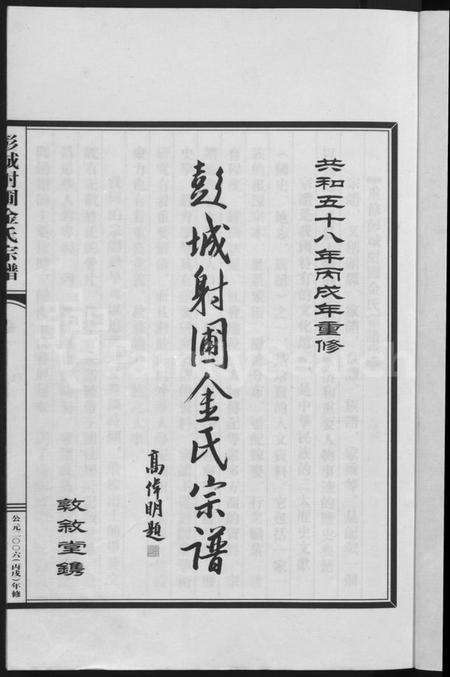 共和五十八年丙戌年重修
彭城射圃金氏宗譜
高倬明題
敦敘堂鐫
彭城射圃金氏宗譜
公元二〇〇六(丙戌)年修
FamilySearch